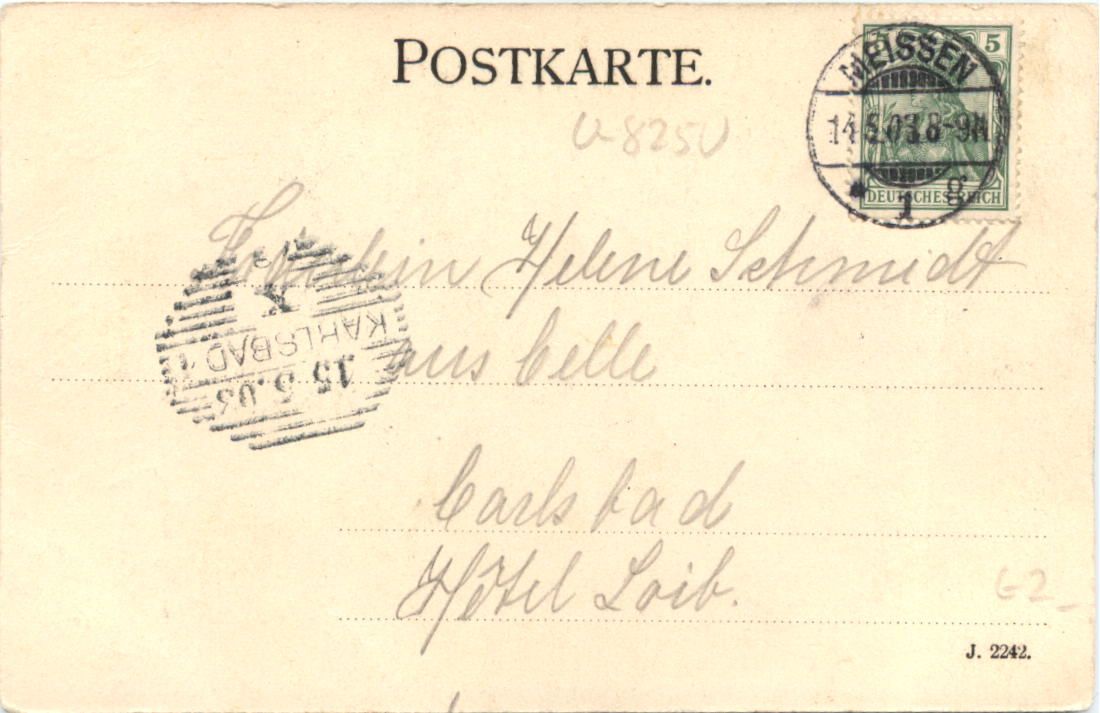 POSTKARTE.
5
MEISSEN
14.5.03.8-9N
* 1 g
DEUTSCHES REICH
Fräulein Helene Schmidt
KARLSBAD 1
15.5.03
aus Celle
Carlsbad
Hôtel Loib.
J. 2242.